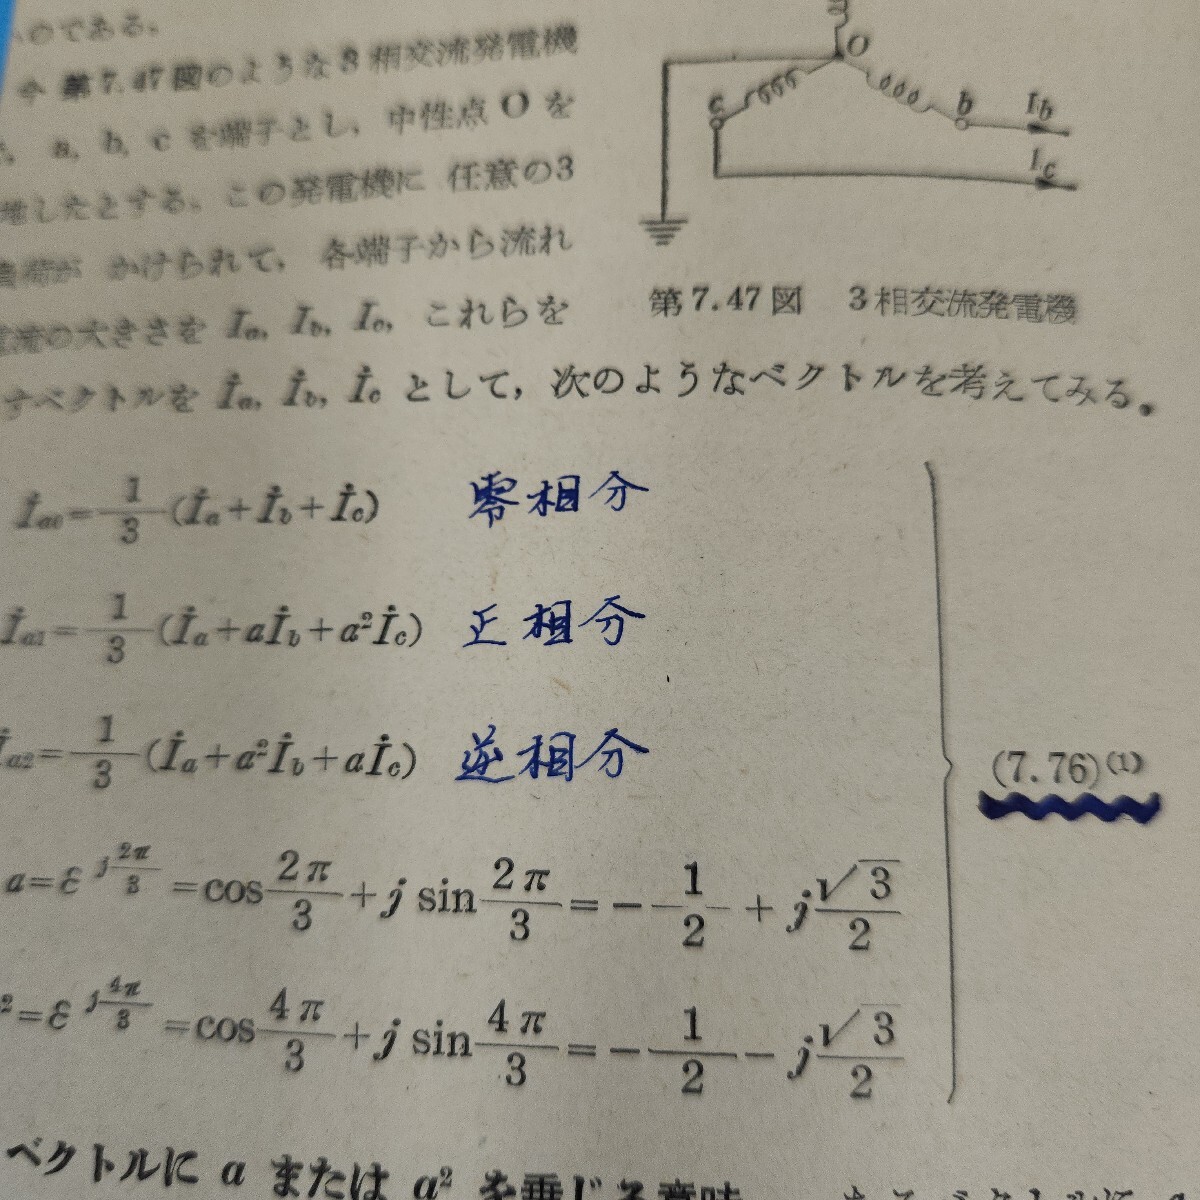 のである。
今 第7.47図のような3相交流発電機
a, b, c を端子とし, 中性点 O を
したとする。この発電機に 任意の3
負荷が かけられて, 各端子から流れ
電流の大きさを Ia, Ib, Ic, これらを
すベクトルを İa, İb, İc として, 次のようなベクトルを考えてみる。
O
c
b
Ib
Ic
第7.47図 3相交流発電機
İa0=1/3(İa+İb+İc) 零相分
İa1=1/3(İa+aİb+a²İc) 正相分
İa2=1/3(İa+a²İb+aİc) 逆相分
(7.76)(1)
a=ε^j2π/3=cos2π/3+j sin2π/3=-1/2+j√3/2
²=ε^j4π/3=cos4π/3+j sin4π/3=-1/2-j√3/2
ベクトルに a または a² を乗じる意味